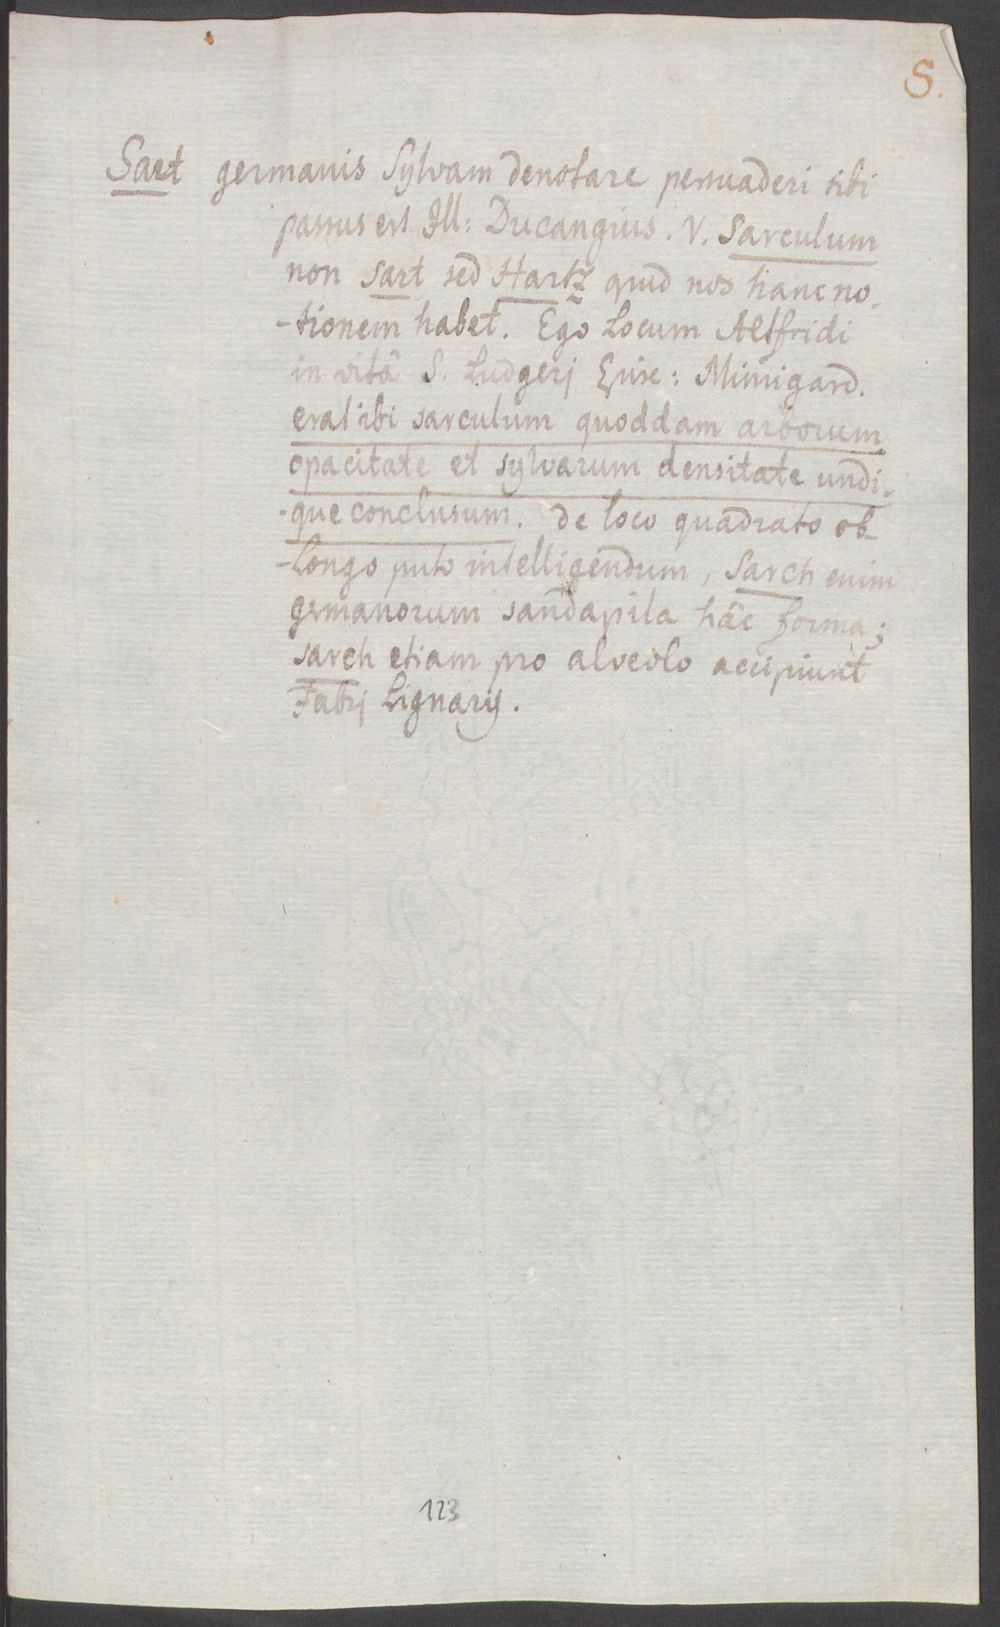 S.
Sart germanis Sylvam denotare persuaderi sibi
passus est Ill: Ducangius. V. Sarculum
non sart sed Hartz apud nos hanc no-
-tionem habet. Ego Locum Altfridi
in vitâ S. Ludgerj Episc: Mimigard.
erat ibi sarculum quoddam arborum
opacitate et sylvarum densitate undi-
-que conclusum. de loco quadrato ob-
-Longo puto intelligendum, Sarch enim
germanorum sandapila hâc forma;
sarch etiam pro alveolo accipiunt
Fabrj Lignarij.
123